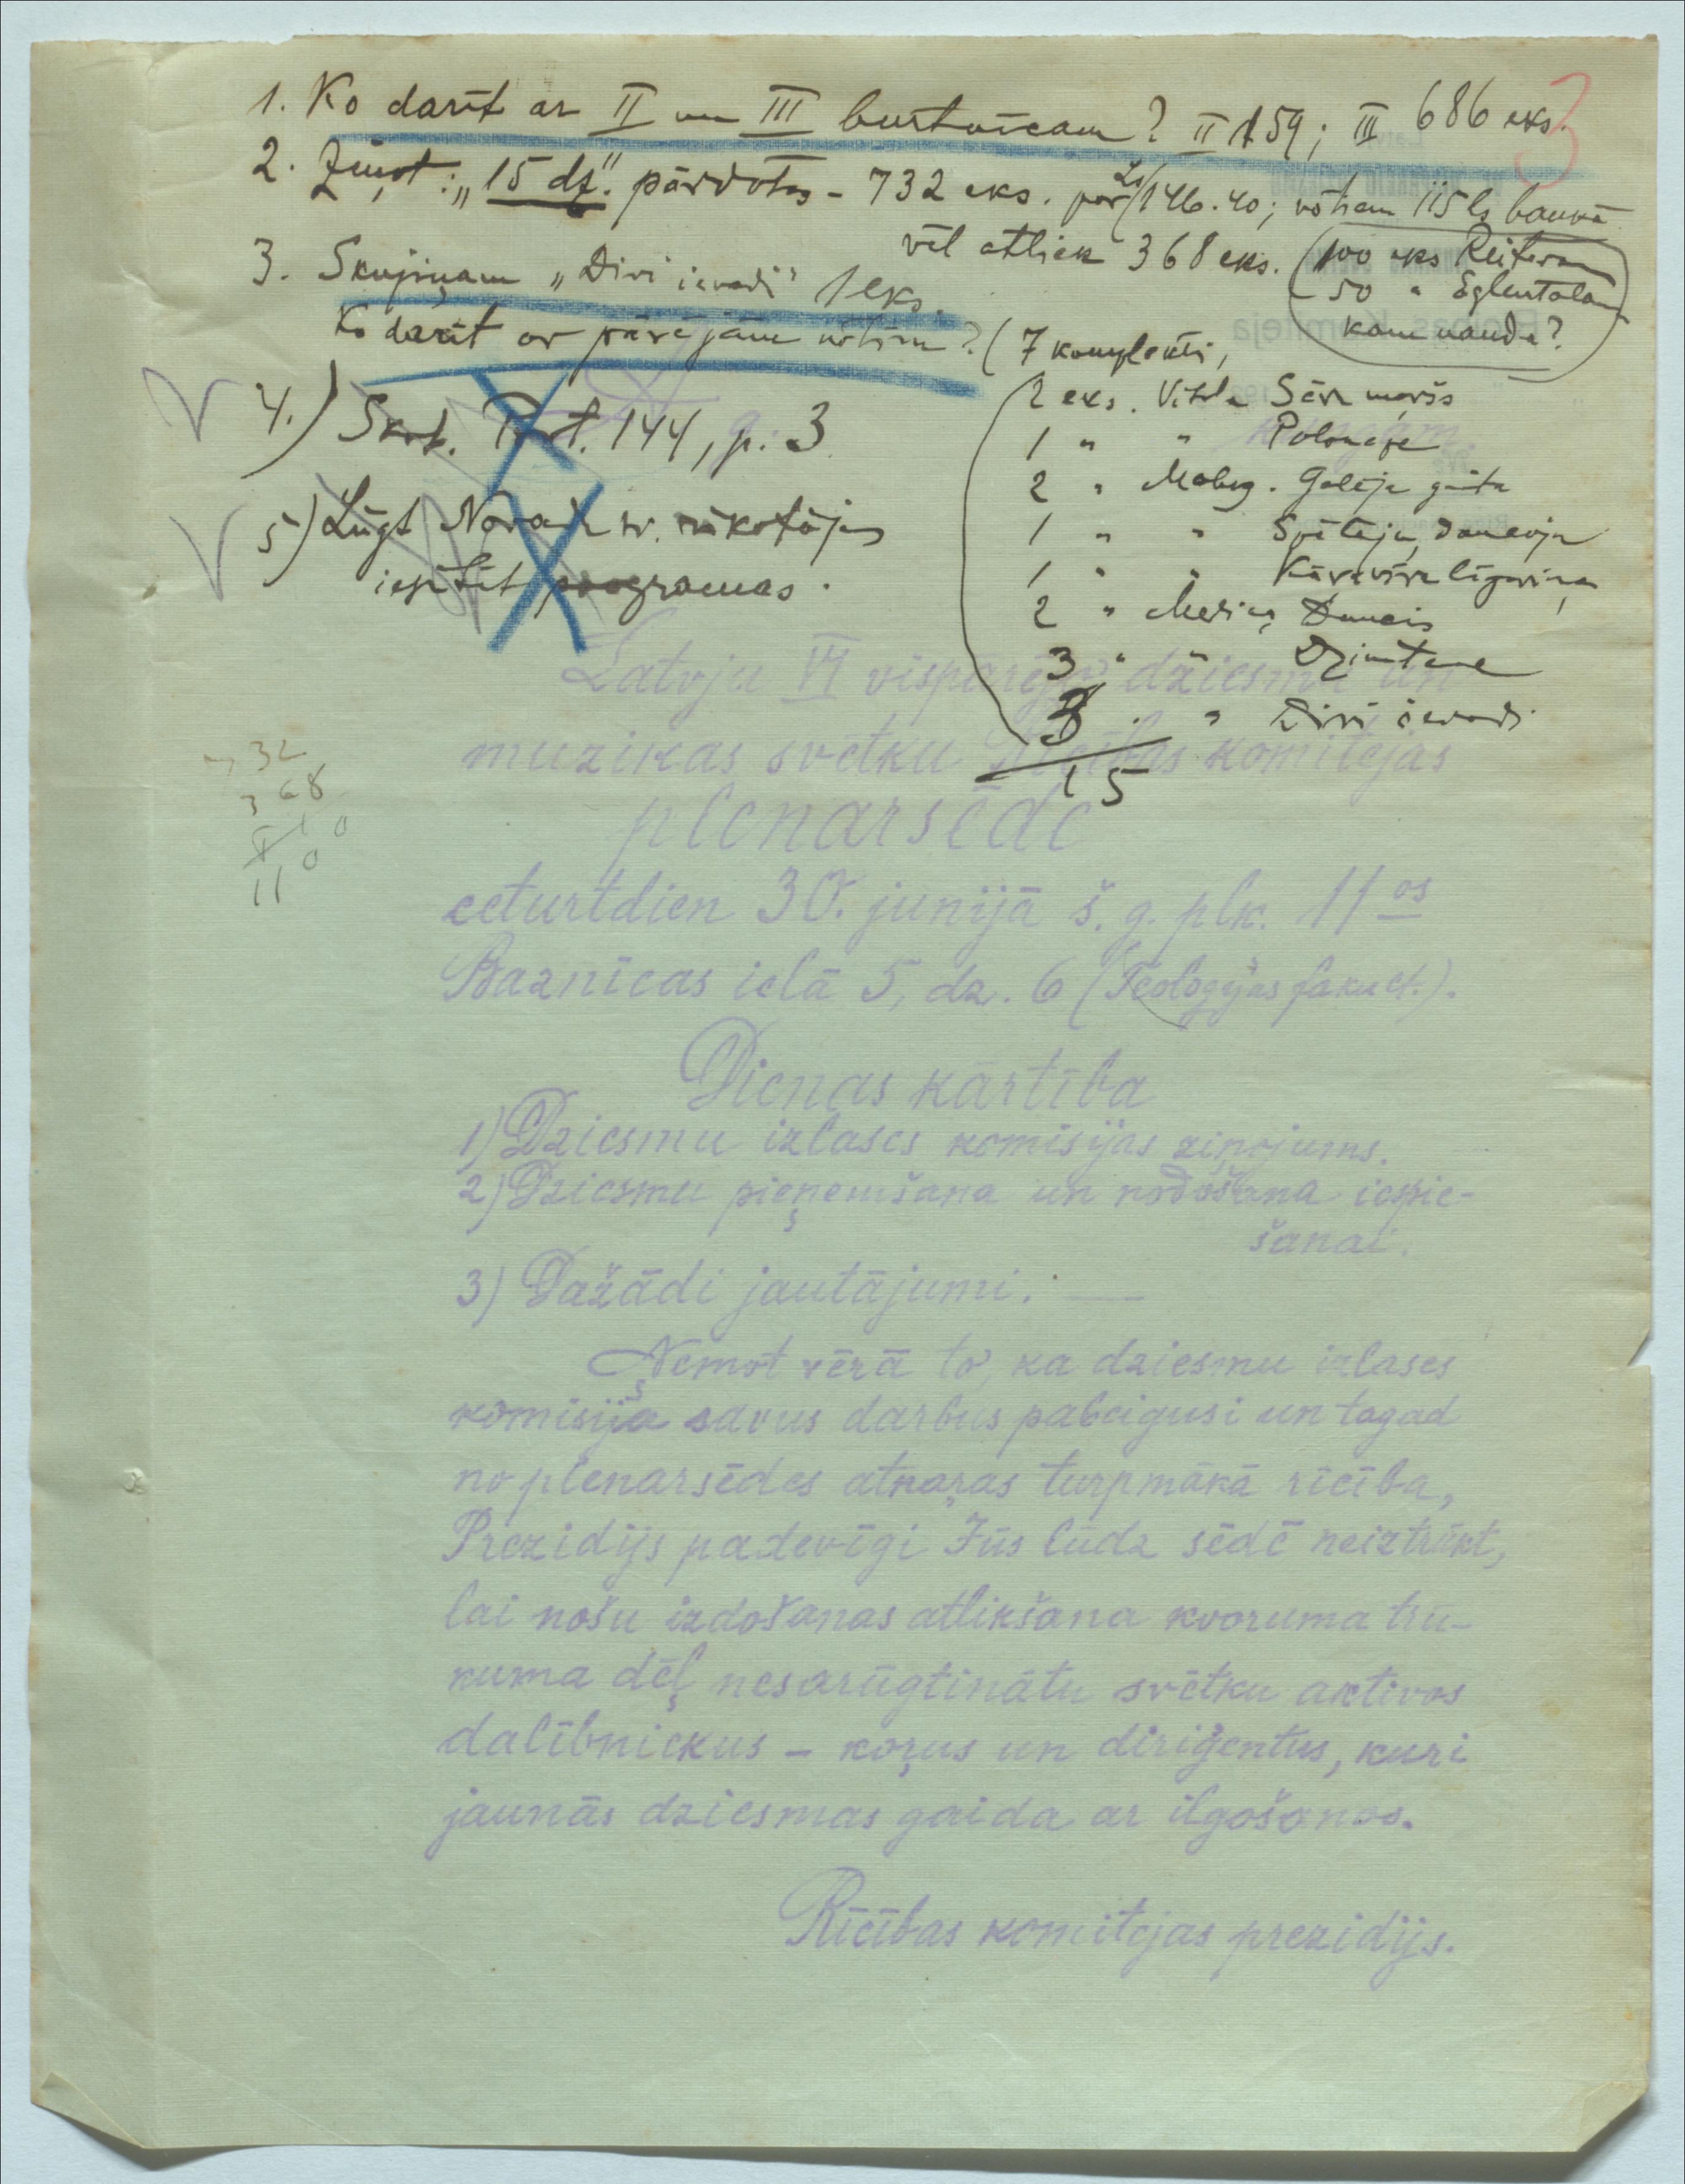 1. Ko darīt ar II un III burtnīcam? II 159; III 686 eks.
3
2. Ziņot: „15 dz." pārdotas - 732 eks. par Ls 146.40; no tiem 115 ls bankā
vēl atliek 368 eks. (100 eks Reiteram
50 " Eglentalam
kam nauda?
3. Skujiņam „Divi ievadi" 1 eks.
Ko darīt ar pārējām notīm? (7 komplekti,
2 eks. Vītola Sēru maršs
1 " " Polonēze
2 " Mediņ. Goleja
1 " " Svētēja danči
1 " " Karavīra līgaviņa
2 " Mediņ Dancis
3 " " Dzimtene
3 " " Divi ievadi
15
4.) Skat. Prot. 144, p. 3
5) Lūgt Novadu sv. rīkotājus
iesūtīt programas.
732
368
1100
Latvju VI vispārējo dziesmu un
muzikas svētku Rīcības komitejas
plenarsēde
ceturtdien 30. junijā š. g. plk. 11os
Baznīcas ielā 5, dz. 6 (Teoloģijas fakult.).
Dienas kārtība
1) Dziesmu izlases komisijas ziņojums.
2) Dziesmu pieņemšana un nodošana iespie-
šanai.
3) Dažādi jautājumi. —
Ņemot vērā to, ka dziesmu izlases
komisija savus darbus pabeigusi un tagad
no plenarsēdes atkaŗas turpmākā rīcība,
Prezidijs padevīgi Jūs lūdz sēdē neiztrūkt,
lai nošu izdošanas atlikšana kvoruma trū-
kuma dēļ nesarūgtinātu svētku aktivos
dalībniekus – koŗus un diriģentus, kuri
jaunās dziesmas gaida ar ilgošanos.
Rīcības komitejas prezidijs.